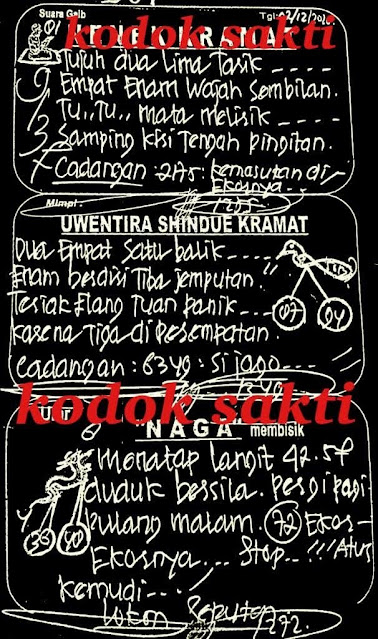 Suara Gaib
Tgl: 02/12/2020
kodok sakti
Tujuh dua Lima Tasik - - - -
Empat Enam Wajah Sembilan.
Tu,, Tu,, mata melisik - - - -
Samping Kisi Tengah pingitan.
Cadangan
Mimpi :
1235
UWENTIRA SHINDUE KRAMAT
Dua Empat Satu balik - - - -
Enam berdiri Tiba jemputan.
Teriak Elang Tuan panik - - - -
Karena Tiga di Perempatan.
07 04
Cadangan : 6349 : Si jago - - - -
1349
kodok sakti
"NAGA" membisik
menatap Langit 42.54
duduk bersila. Pergi pagi
pulang malam. 72 Ekor-
Ekornya... Stop... !!! Atur
kemudi - - -
272.